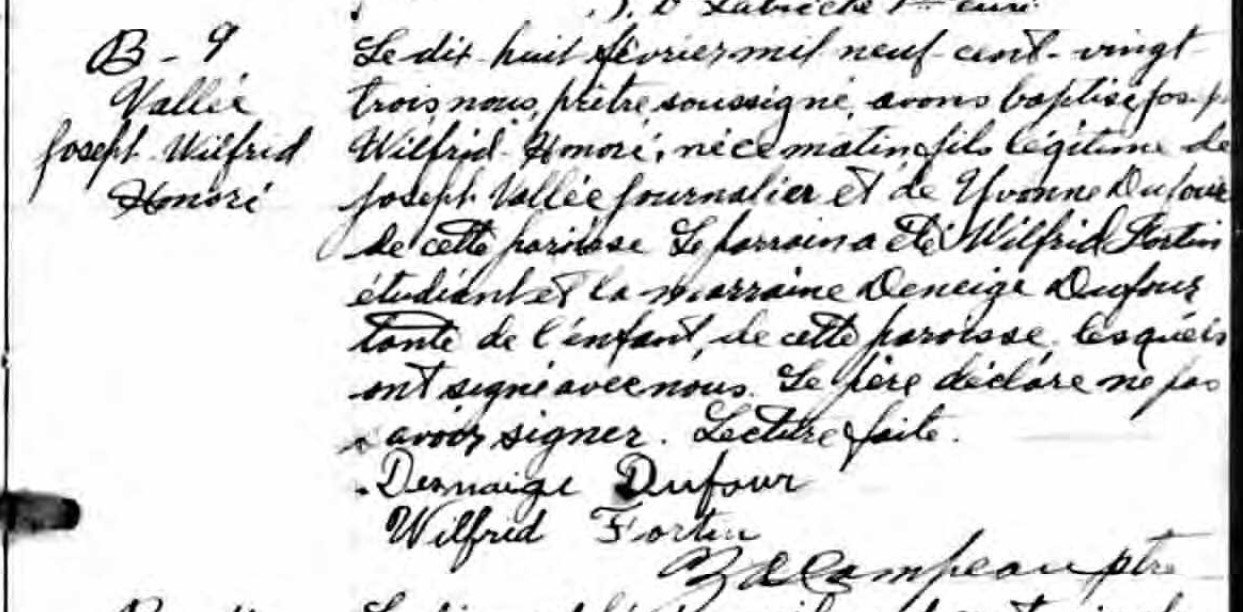 Labrèche Ptre curé
B - 9
Vallée
Joseph Wilfrid
Honoré
Le dix-huit février mil neuf-cent-vingt-
trois, nous, prêtre, soussigné, avons baptisé Joseph
Wilfrid-Honoré, né ce matin, fils légitime de
Joseph Vallée journalier et de Yvonne Dufour
de cette paroisse Le parrain a été Wilfrid Fortin
étudiant et la marraine Deneige Dufour
tante de l'enfant, de cette paroisse, lesquels
ont signé avec nous. Le père déclare ne pas
savoir signer. Lecture faite.
Dennaige Dufour
Wilfrid Fortin
Campeau ptre